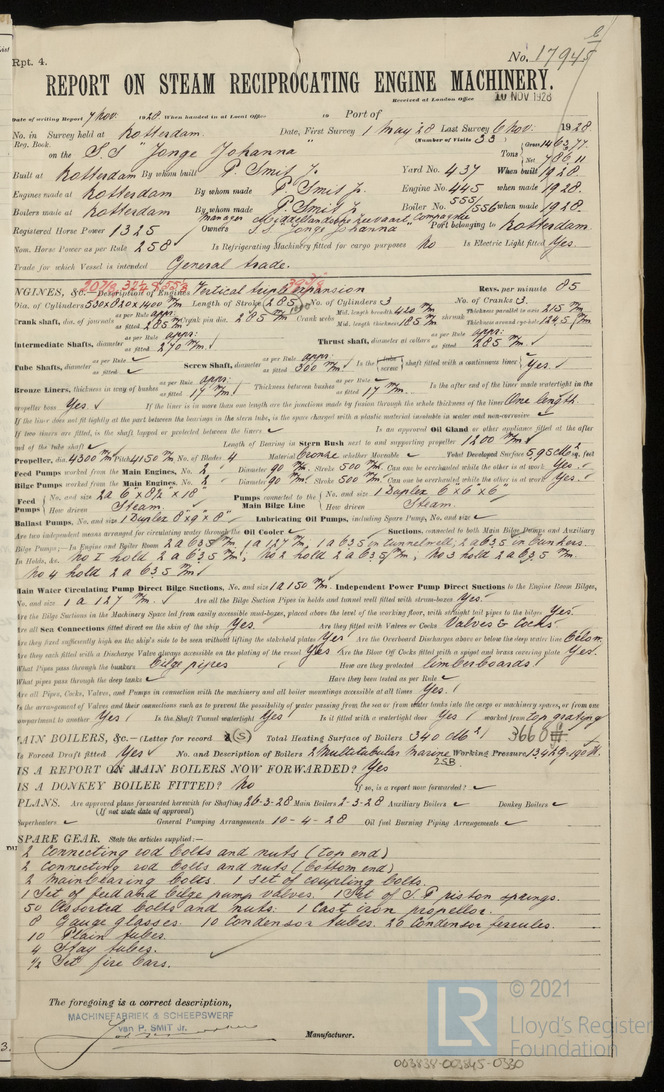 Rpt. 4.
No. 1794
REPORT ON STEAM RECIPROCATING ENGINE MACHINERY.
Received at London Office 10 NOV 1928
Date of writing Report 7 Nov. 1928 When handed in at Local Office 19 Port of
No. in Survey held at Rotterdam. Date, First Survey 1 May 28 Last Survey 6 Nov: 1928.
Reg. Book. (Number of Visits 33)
on the S.S "Jonge Johanna" Tons Gross 1463.77 Net 786.11
Built at Rotterdam By whom built P. Smit Jr. Yard No. 437 When built 1928.
Engines made at Rotterdam By whom made P. Smit Jr. Engine No. 445 when made 1928.
Boilers made at Rotterdam By whom made P. Smit Jr. Boiler No. 555/556 when made 1928.
Registered Horse Power 1325 Owners S.S "Jonge Johanna" Port belonging to Rotterdam
Nom. Horse Power as per Rule 258 Is Refrigerating Machinery fitted for cargo purposes No Is Electric Light fitted Yes.
Trade for which Vessel is intended General trade.
ENGINES, &c. Description of Engines Vertical triple expansion Revs. per minute 85
Dia. of Cylinders 530 x 820 x 1400 m/m Length of Stroke No. of Cylinders 3 No. of Cranks 3.
Crank shaft, dia. of journals as per Rule appr: as fitted 285 m/m Crank pin dia. 285 m/m Crank webs Mid. length breadth 420 m/m Mid. length thickness 185 m/m shrunk Thickness parallel to axis 215 m/m Thickness around eye-hole 124.5 m/m
Intermediate Shafts, diameter as per Rule appr: as fitted 270 m/m. Thrust shaft, diameter at collars as per Rule appr: as fitted 285 m/m.
Tube Shafts, diameter as per Rule as fitted Screw Shaft, diameter as per Rule appr: as fitted 300 m/m Is the tube screw shaft fitted with a continuous liner Yes.
Bronze Liners, thickness in way of bushes as per Rule appr: as fitted 17 m/m Thickness between bushes as per Rule as fitted 17 m/m. Is the after end of the liner made watertight in the
propeller boss Yes. If the liner is in more than one length are the junctions made by fusion through the whole thickness of the liner One length.
If the liner does not fit tightly at the part between the bearings in the stern tube, is the space charged with a plastic material insoluble in water and non-corrosive
If two liners are fitted, is the shaft lapped or protected between the liners Is an approved Oil Gland or other appliance fitted at the after
end of the tube shaft Length of Bearing in Stern Bush next to and supporting propeller 1200 m/m
Propeller, dia. 4300 m/m Pitch 4150 m/m No. of Blades 4 Material bronze. whether Moveable Total Developed Surface 5.95 M2 sq. feet
Feed Pumps worked from the Main Engines, No. 2 Diameter 90 m/m. Stroke 500 m/m Can one be overhauled while the other is at work Yes.
Bilge Pumps worked from the Main Engines, No. 2 Diameter 90 m/m. Stroke 500 m/m Can one be overhauled while the other is at work Yes.
Feed Pumps No. and size 2 a 6" x 8½" x 18" How driven Steam. Pumps connected to the Main Bilge Line No. and size 1 Duplex 6" x 6" x 6" How driven Steam.
Ballast Pumps, No. and size 1 Duplex 8" x 9" x 8" Lubricating Oil Pumps, including Spare Pump, No. and size
Are two independent means arranged for circulating water through the Oil Cooler Suctions, connected to both Main Bilge Pumps and Auxiliary
Bilge Pumps;—In Engine and Boiler Room 2 a 63.5 m/m, 1 a 127 m/m. 1 a 63.5 in tunnelwell, 2 a 63.5 in bunkers.
In Holds, &c. No 1 hold 2 a 63.5 m/m, No 2 hold 2 a 63.5 m/m, No 3 hold 2 a 63.5 m/m.
No 4 hold 2 a 63.5 m/m
Main Water Circulating Pump Direct Bilge Suctions, No. and size 1 a 150 m/m. Independent Power Pump Direct Suctions to the Engine Room Bilges,
No. and size 1 a 127 m/m. Are all the Bilge Suction Pipes in holds and tunnel well fitted with strum-boxes Yes.
Are the Bilge Suctions in the Machinery Space led from easily accessible mud-boxes, placed above the level of the working floor, with straight tail pipes to the bilges Yes.
Are all Sea Connections fitted direct on the skin of the ship Yes. Are they fitted with Valves or Cocks Valves & Cocks.
Are they fixed sufficiently high on the ship's side to be seen without lifting the stokehold plates Yes Are the Overboard Discharges above or below the deep water line Below.
Are they each fitted with a Discharge Valve always accessible on the plating of the vessel Yes Are the Blow Off Cocks fitted with a spigot and brass covering plate Yes.
What Pipes pass through the bunkers bilge pipes How are they protected limberboards
What pipes pass through the deep tanks Have they been tested as per Rule
Are all Pipes, Cocks, Valves, and Pumps in connection with the machinery and all boiler mountings accessible at all times Yes.
Is the arrangement of Valves and their connections such as to prevent the possibility of water passing from the sea or from water tanks into the cargo or machinery spaces, or from one
compartment to another Yes Is the Shaft Tunnel watertight Yes Is it fitted with a watertight door Yes worked from top grating
MAIN BOILERS, &c.—(Letter for record (S)) Total Heating Surface of Boilers 340 M2 3660
Is Forced Draft fitted Yes No. and Description of Boilers 2 Multitubular marine 2SB Working Pressure
IS A REPORT ON MAIN BOILERS NOW FORWARDED? Yes
IS A DONKEY BOILER FITTED? No If so, is a report now forwarded?
PLANS. Are approved plans forwarded herewith for Shafting 26-3-28 Main Boilers 2-3-28 Auxiliary Boilers Donkey Boilers
(If not state date of approval)
Superheaters General Pumping Arrangements 10-4-28 Oil fuel Burning Piping Arrangements
SPARE GEAR. State the articles supplied:—
2 Connecting rod bolts and nuts (top end)
2 Connecting rod bolts and nuts (bottom end)
2 Mainbearing bolts. 1 set of coupling bolts.
1 Set of feed and bilge pump valves. 1 Set of piston springs.
50 Assorted bolts and nuts. 1 Cast iron propellor.
8 Gauge glasses. 10 Condensor tubes. 20 Condensor ferrules.
10 Plain tubes.
4 Stay tubes.
½ Set fire bars.
The foregoing is a correct description,
MACHINEFABRIEK & SCHEEPSWERF
van P. SMIT Jr.
Manufacturer.
© 2021
LR
Lloyd's Register
Foundation
003838-003845-0330